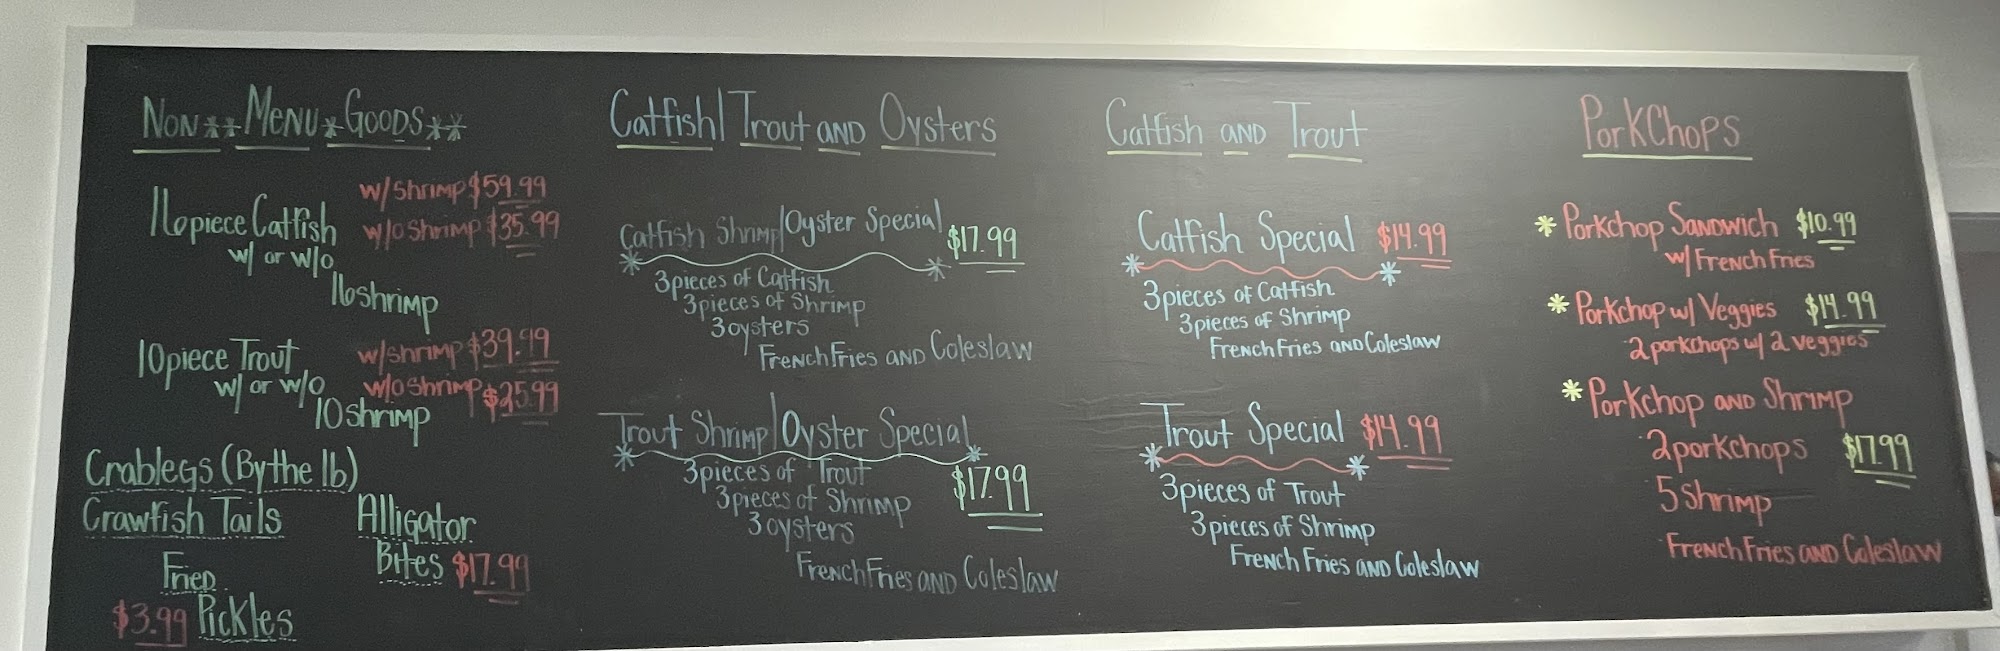 Non**Menu*Goods**
16piece Catfish w/shrimp $59.99
w/o shrimp $35.99
w/ or w/o
16shrimp
10piece Trout w/shrimp $39.99
w/ or w/o w/o shrimp $25.99
10shrimp
Crablegs (By the lb)
Crawfish Tails
Alligator
Bites $17.99
Fried
$3.99 Pickles
Catfish| Trout and Oysters
Catfish Shrimp|Oyster Special $17.99
3pieces of Catfish
3pieces of Shrimp
3oysters
French Fries and Coleslaw
Trout Shrimp|Oyster Special
3pieces of Trout $17.99
3pieces of Shrimp
3oysters
French Fries and Coleslaw
Catfish and Trout
Catfish Special $14.99
3pieces of Catfish
3pieces of Shrimp
French Fries and Coleslaw
Trout Special $14.99
3pieces of Trout
3pieces of Shrimp
French Fries and Coleslaw
PorkChops
* Porkchop Sandwich $10.99
w/ French Fries
* Porkchop w/ Veggies $14.99
2 porkchops w/ 2 veggies
* Porkchop and Shrimp
2porkchops $17.99
5 Shrimp
French Fries and Coleslaw